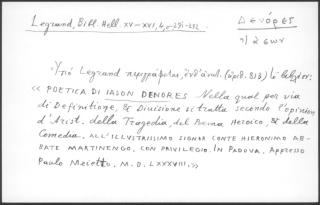 Legrand, Bibl. Hell. XV-XVI, 4, σ. 291-292
Δενόρες
Ὑπό Legrand περιγράφεται, (ἀριθ. 818) τό βιβλίον:
«POETICA DI IASON DENORES Nella qual per via
di Definitione, & Divisione si tratta secondo l'opinion
d'Arist. della Tragedia, del Poema Heroico, & della
Comedia. ALL'ILLUSTRISSIMO SIGNOR CONTE HIERONIMO AB-
BATE MARTINENGO. CON PRIVILEGIO. IN PADOVA, Appresso
Paulo Meietto, M.D. LXXXVIII.»